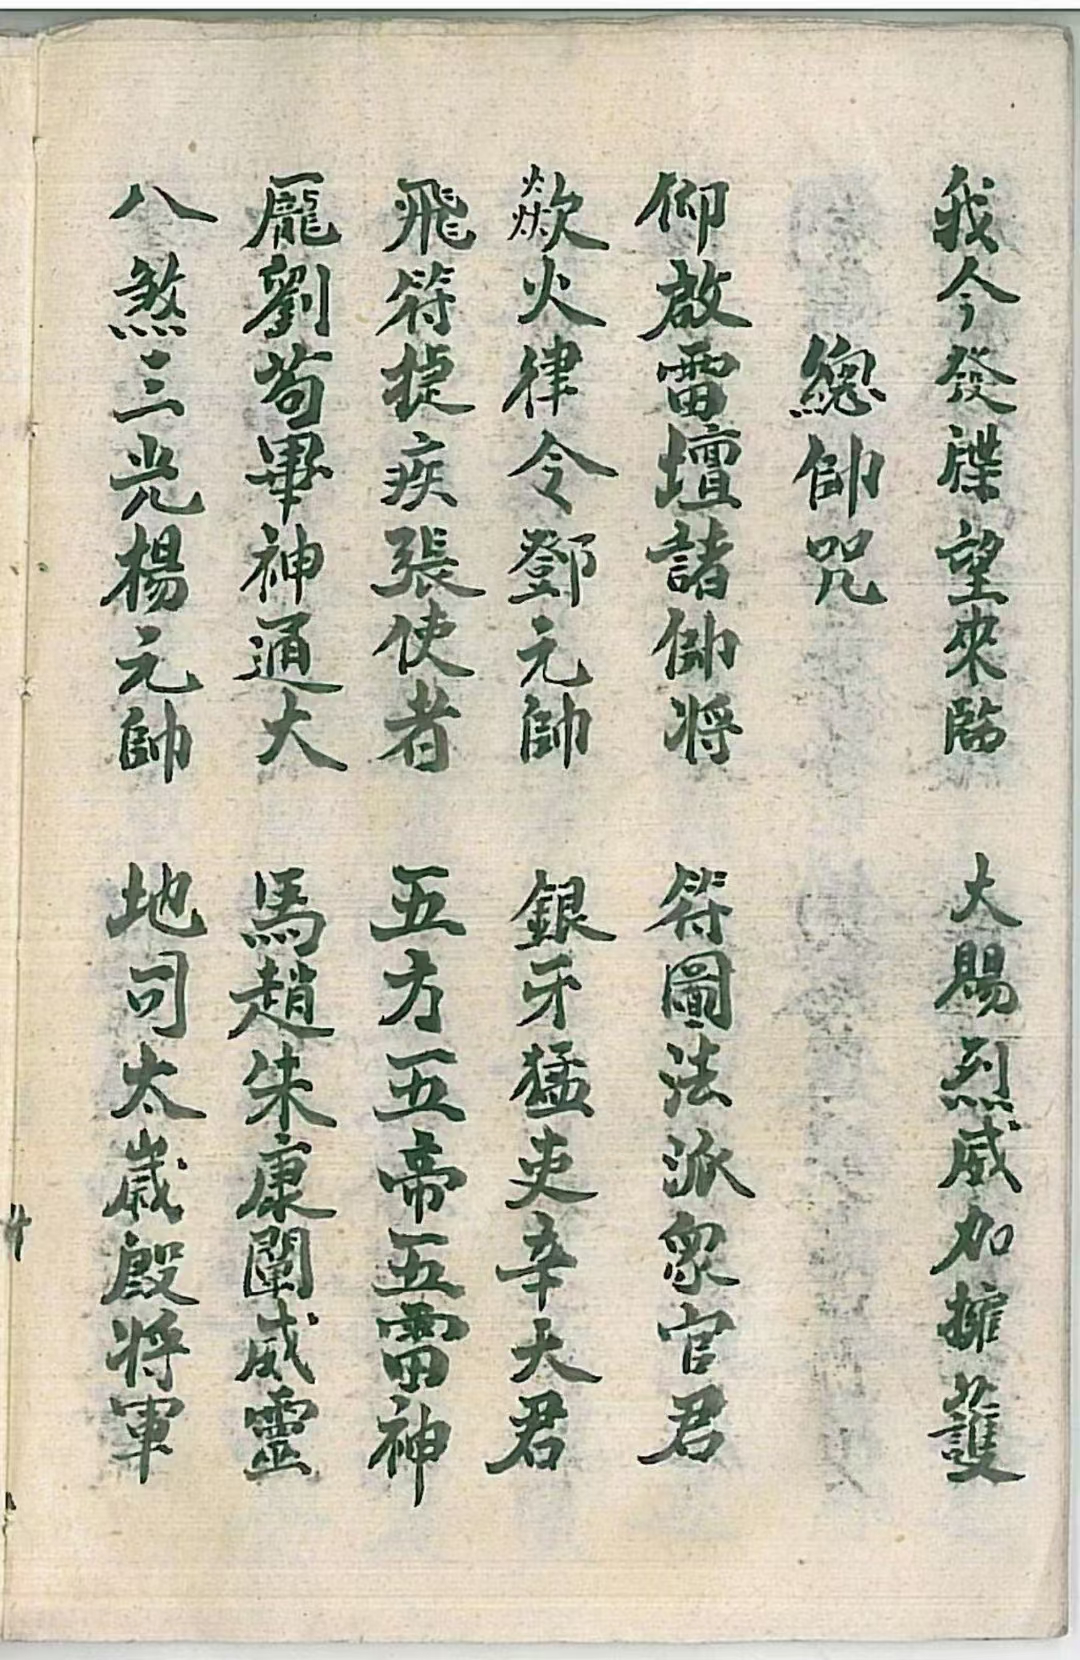 我今發牒望來臨 大賜烈威加擁護
總帥咒
仰啟雷壇諸帥将 符圖法派衆官君
歘火律令鄧元帥 銀牙猛吏辛天君
飛符捷疾張使者 五方五帝五雷神
龐劉苟畢神通大 馬趙朱康闡威靈
八煞三光楊元帥 地司太歲殷将軍